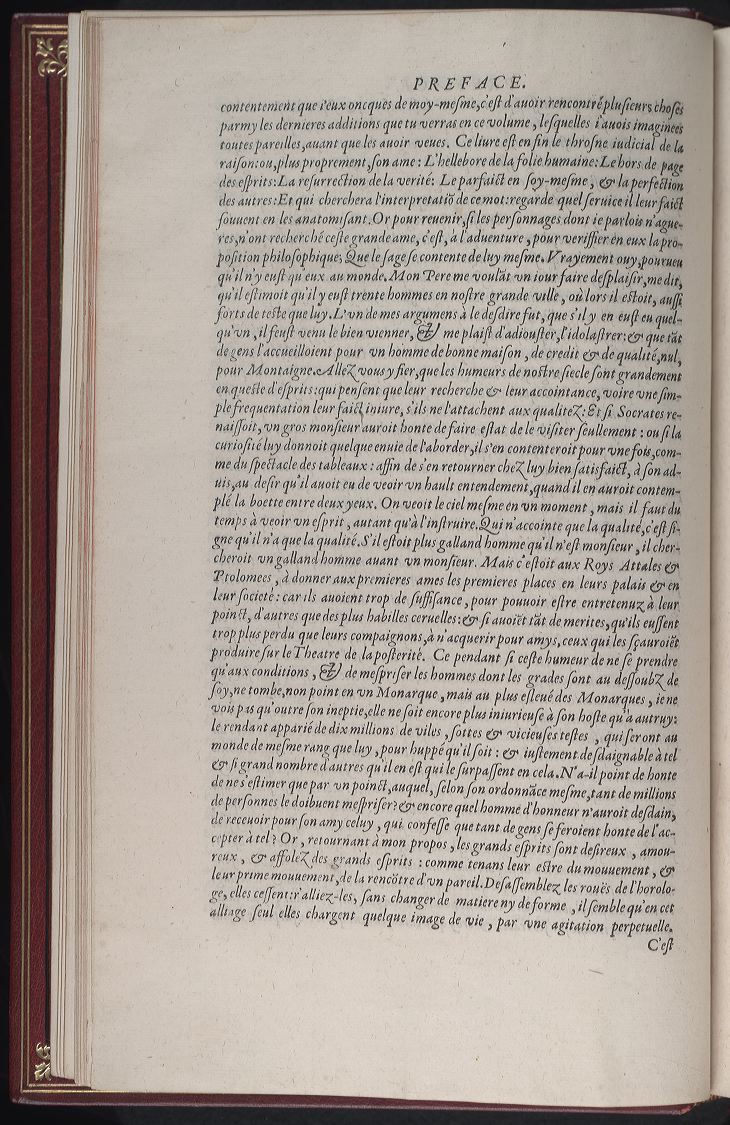 PREFACE.
contentement que i'eux oncques de moy-meſme, c'eſt d'auoir rencontré pluſieurs choſes
parmy les dernieres additions que tu verras en ce volume, leſquelles i'auois imaginees
toutes pareilles, auant que les auoir veues. Ce liure eſt en fin le throſne iudicial de la
raiſon: ou, plus proprement, ſon ame: L'hellebore de la folie humaine: Le hors de page
des eſprits: La reſurrection de la verité: Le parfaict en ſoy-meſme, & la perfection
des autres: Et qui cherchera l'interpretatiõ de ce mot: regarde quel ſeruice il leur faict
ſouuent en les anatomiſant. Or pour reuenir, ſi les perſonnages dont ie parlois n'ague-
res, n'ont recherché ceſte grande ame, c'eſt, à l'aduenture, pour veriffier en eux la pro-
poſition philoſophique; Que le ſage ſe contente de luy meſme. Vrayement ouy, pourueu
qu'il n'y euſt qu'eux au monde. Mon Pere me voulãt vn iour faire deſplaiſir, me dit,
qu'il eſtimoit qu'il y euſt trente hommes en noſtre grande ville, où lors il eſtoit, auſſi
forts de teſte que luy. L'vn de mes argumens à le deſdire fut, que s'il y en euſt eu quel-
qu'vn, il feuſt venu le bien vienner, & me plaiſt d'adiouſter, l'idolaſtrer: & que tãt
de gens l'accueilloient pour vn homme de bonne maiſon, de credit & de qualité, nul,
pour Montaigne. Allez vous y fier, que les humeurs de noſtre ſiecle ſont grandement
en queſte d'eſprits: qui penſent que leur recherche & leur accointance, voire vne ſim-
ple frequentation leur faict iniure, s'ils ne l'attachent aux qualitez: Et ſi Socrates re-
naiſſoit, vn gros monſieur auroit honte de faire eſtat de le viſiter ſeullement: ou ſi la
curioſité luy donnoit quelque enuie de l'aborder, il s'en contenteroit pour vne fois, com-
me du ſpectacle des tableaux: affin de s'en retourner chez luy bien ſatisfaict, à ſon ad-
uis, au deſir qu'il auoit eu de veoir vn hault entendement, quand il en auroit contem-
plé la boette entre deux yeux. On veoit le ciel meſme en vn moment, mais il faut du
temps à veoir vn eſprit, autant qu'à l'inſtruire. Qui n'accointe que la qualité, c'eſt ſi-
gne qu'il n'a que la qualité. S'il eſtoit plus galland homme qu'il n'eſt monſieur, il cher-
cheroit vn galland homme auant vn monſieur. Mais c'eſtoit aux Roys Attales &
Ptolomees, à donner aux premieres ames les premieres places en leurs palais & en
leur ſocieté: car ils auoient trop de ſuffiſance, pour pouuoir eſtre entretenuz à leur
poinct, d'autres que des plus habilles ceruelles: & ſi auoiẽt tãt de merites, qu'ils euſſent
trop plus perdu que leurs compaignons, à n'acquerir pour amys, ceux qui les ſçauroiẽt
produire ſur le Theatre de la poſterité. Ce pendant ſi ceſte humeur de ne ſe prendre
qu'aux conditions, & de meſpriſer les hommes dont les grades ſont au deſſoubz de
ſoy, ne tombe, non point en vn Monarque, mais au plus eſleué des Monarques, ie ne
vois pas qu'outre ſon ineptie, elle ne ſoit encore plus iniurieuſe à ſon hoſte qu'à autruy:
le rendant apparié de dix millions de viles, ſottes & vicieuſes teſtes, qui ſeront au
monde de meſme rang que luy, pour huppé qu'il ſoit: & iuſtement deſdaignable à tel
& ſi grand nombre d'autres qu'il en eſt qui le ſurpaſſent en cela. N'a-il point de honte
de ne s'eſtimer que par vn poinct, auquel, ſelon ſon ordonnãce meſme, tant de millions
de perſonnes le doibuent meſpriſer? & encore quel homme d'honneur n'auroit deſdain,
de receuoir pour ſon amy celuy, qui confeſſe que tant de gens ſe feroient honte de l'ac-
cepter à tel? Or, retournant à mon propos, les grands eſprits ſont deſireux, amou-
reux, & affolez des grands eſprits: comme tenans leur eſtre du mouuement, &
leur prime mouuement, de la rencõtre d'vn pareil. Deſaſſemblez les rouës de l'horolo-
ge, elles ceſſent: r'alliez-les, ſans changer de matiere ny de forme, il ſemble qu'en cet
alliage ſeul elles chargent quelque image de vie, par vne agitation perpetuelle.
C'eſt